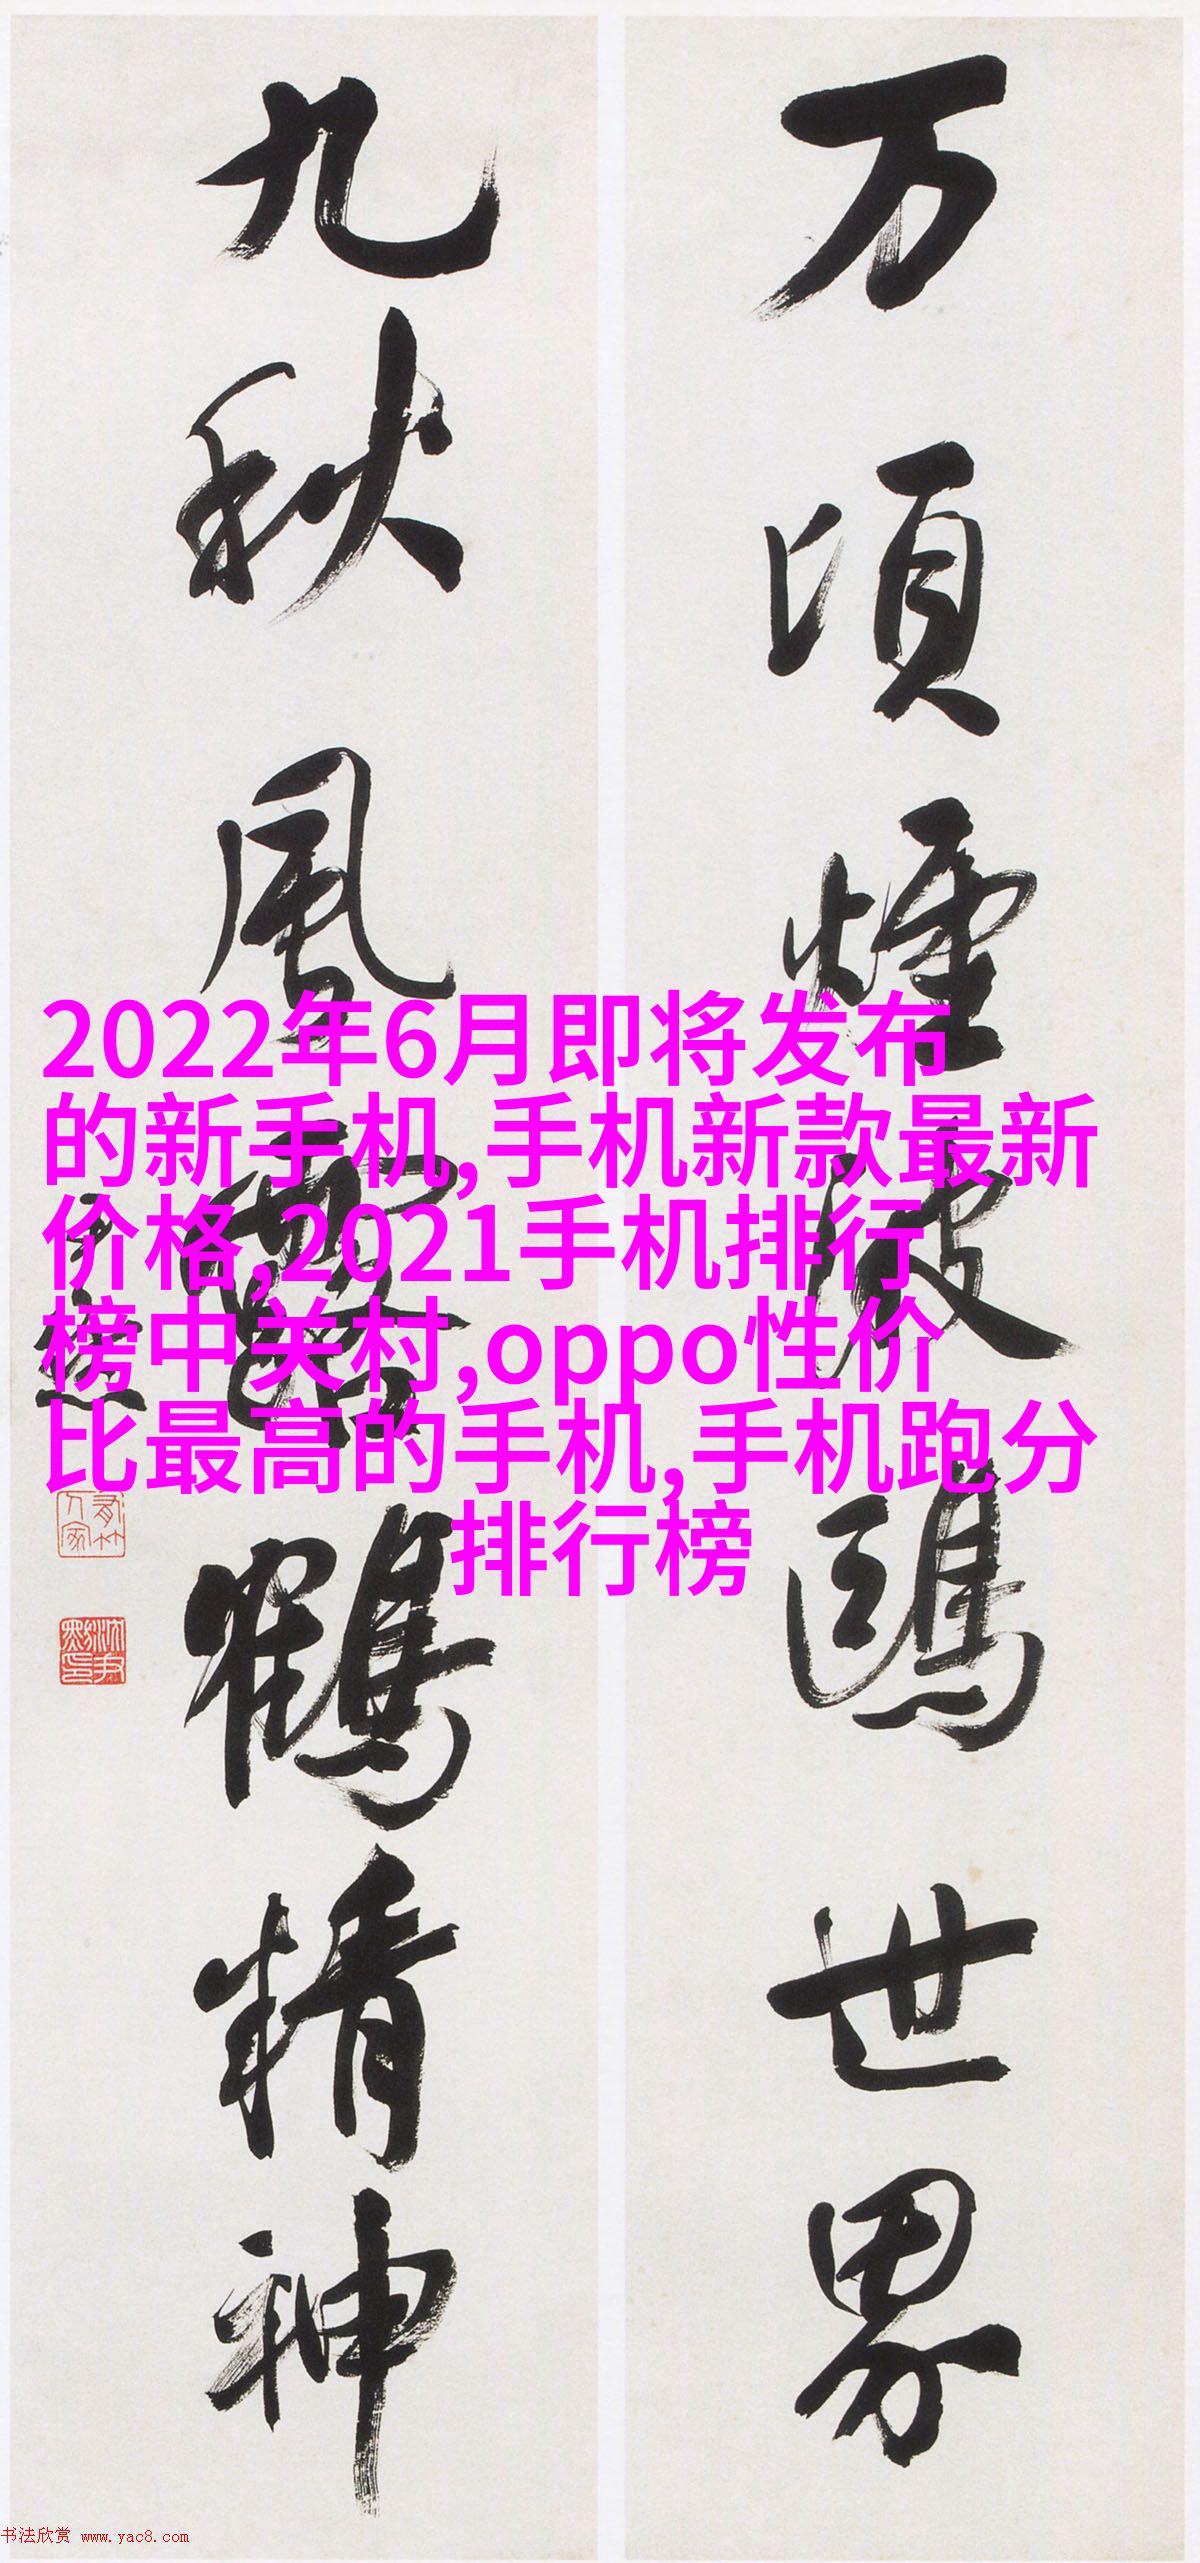 万顷煙波鷗世界
九秋風露鶴精神
尹默
2022年6月即将发布
的新手机,手机新款最新
价格,2021手机排行
榜中关村,oppo性价
比最高的手机,手机跑分
排行榜
沈尹
默印
书法欣赏 www.yac8.com